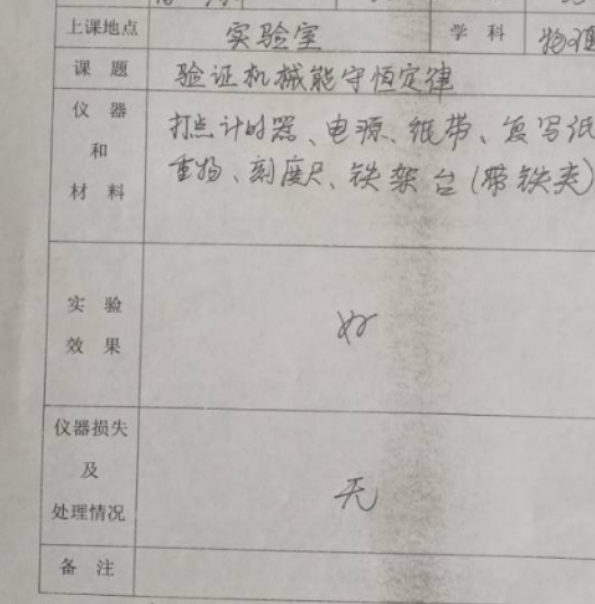 上课地点 实验室 学科 物理
课题 验证机械能守恒定律
仪器和材料 打点计时器、电源、纸带、复写纸
重物、刻度尺、铁架台(带铁夹)
实验效果 好
仪器损失及处理情况 无
备注